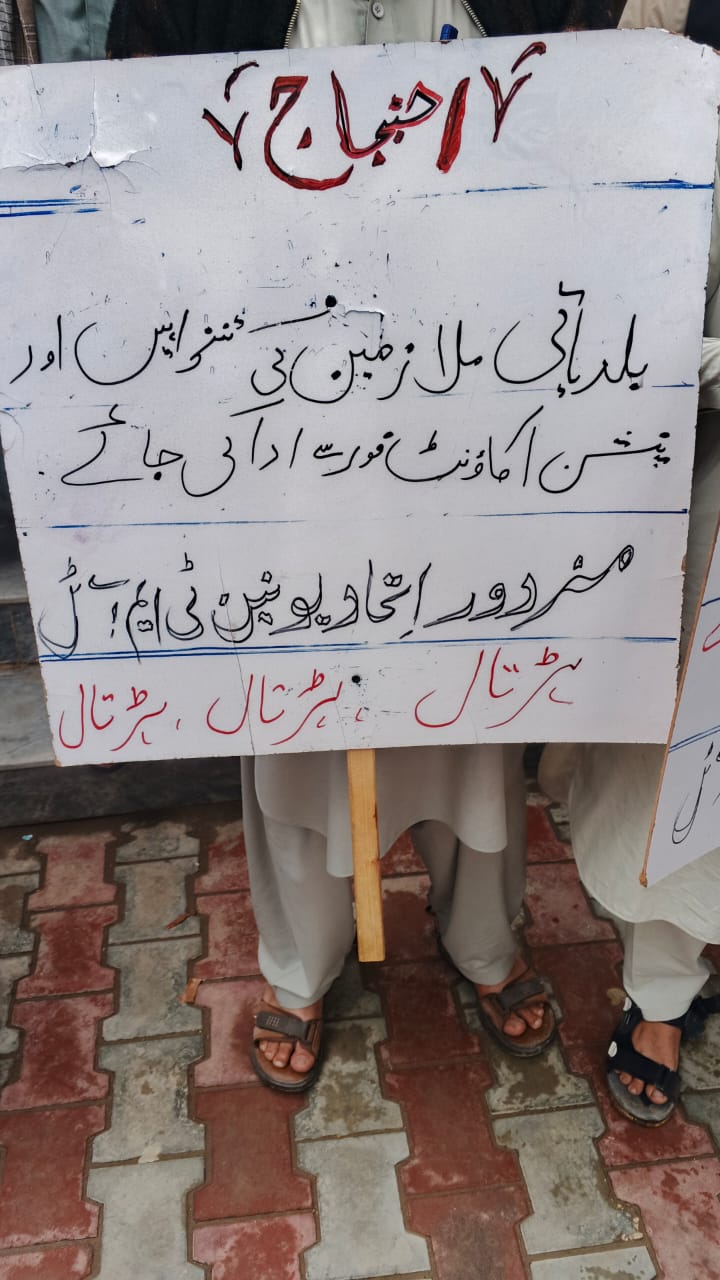 احتجاج
بلدیاتی ملازمین کی تنخواہیں اور
پنشن اکاؤنٹ فور سے ادا کی جائے۔
مزدور اتحاد یونین ٹی ایم اے ٹل
ہڑتال، ہڑتال، ہڑتال
ٹل